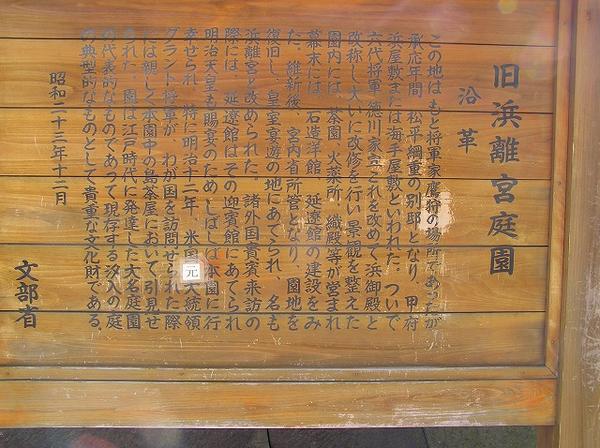 旧浜離宮庭園
沿革
この地はもと将軍家鷹狩の場所であったが
承応年間、松平綱重の別邸となり、甲府
浜屋敷または海手屋敷といわれた。ついで
六代将軍徳川家宣これを改めて浜御殿と
改称し大いに改修を行い景観を整えた
園内には、茶園、火薬所、織殿等が営まれ
幕末には、石造洋館、延遼館の建設をみ
た。維新後、宮内省所管となり、園地を
復旧し、皇室宴遊の地にあてられ、名も
浜離宮と改められた。諸外国貴賓来訪の
際には、延遼館はその迎賓館にあてられ
明治天皇も賜宴のためしばしば本園に行
幸せられ、特に明治十二年、米国元大統領
グラント将軍が、わが国を訪問せられた際
には親しく本園中の島茶屋において引見せ
られた。園は江戸時代に発達した大名庭園
の代表的なものであって現存する汐入の庭
の典型的なものとして貴重な文化財である。
昭和二十三年十二月
文部省